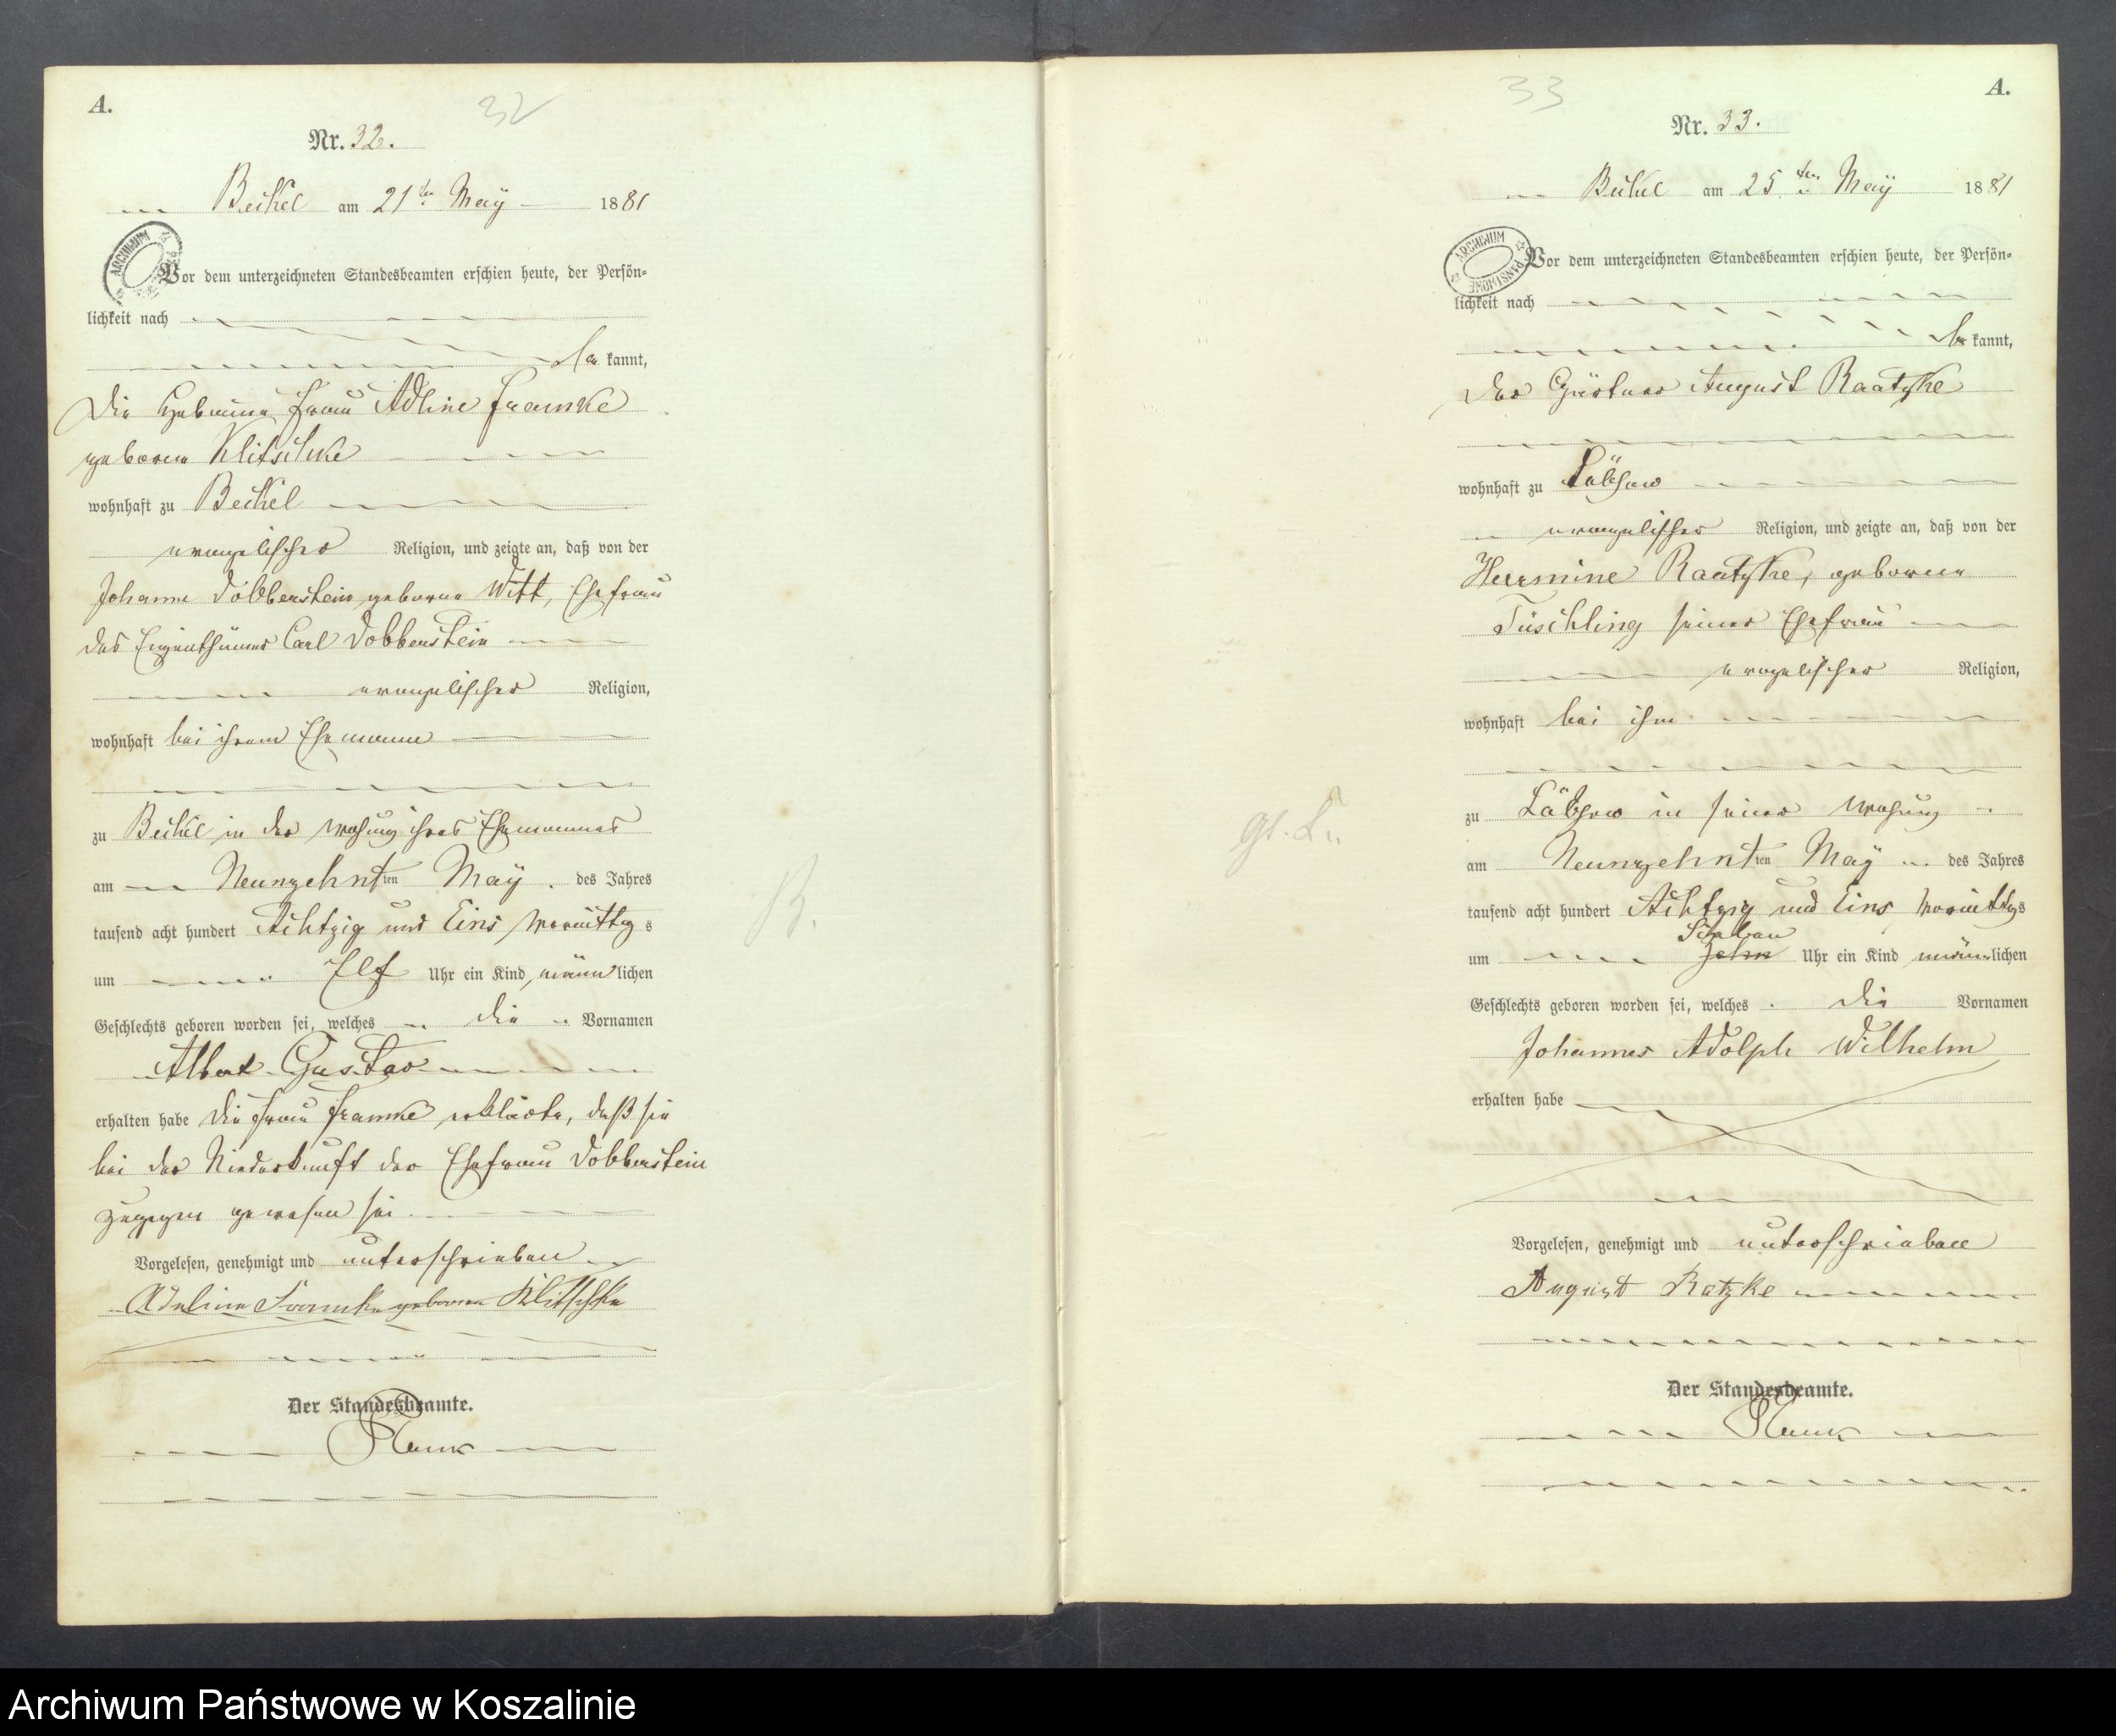 A.
32
Nr. 32.
Beckel am 21ten May 1881
ARCHIWUM
Vor dem unterzeichneten Standesbeamten erschien heute, der Persön=
lichkeit nach
be kannt,
die Hebamme Frau Adline Framke
geborene Klitschke
wohnhaft zu Beckel
evangelischer Religion, und zeigte an, daß von der
Johanne Dobbenstein geborne Witt, Ehefrau
des Eigenthümer Carl Dobbenstein
evangelischer Religion,
wohnhaft bei ihrem Ehemanne
zu Beckel in der Wohung ihres Ehemannes
am Neunzehntten May des Jahres
tausend acht hundert Achtzig und Eins Vormittags
um Elf Uhr ein Kind männlichen
Geschlechts geboren worden sei, welches die Vornamen
Albert Gustav
erhalten habe die Frau Framke erklärte, daß sie
bei der Niederkunft der Ehefrau Dobbenstein
zugegen gewesen sei.
Vorgelesen, genehmigt und unterschrieben
Adeline Framke geborene Klitschke
Der Standesbeamte.
B.
A.
33
Nr. 33.
Beckel am 25ten May 1881
ARCHIWUM PAŃSTWOWE
Vor dem unterzeichneten Standesbeamten erschien heute, der Persön=
lichkeit nach
be kannt,
der Gärtner August Raatzke
wohnhaft zu Läbehn
evangelischer Religion, und zeigte an, daß von der
Hermine Raatzke, geborene
Tüschling seiner Ehefrau
evangelischer Religion,
wohnhaft bei ihm
zu in seiner Wohung
am Neunzehntten May des Jahres
tausend acht hundert Achtzig und Eins Vormittags
Sieben
um Zehn Uhr ein Kind männlichen
Geschlechts geboren worden sei, welches die Vornamen
Johannes Adolph Wilhelm
erhalten habe
Vorgelesen, genehmigt und unterschrieben
August Ratzke
Der Standesbeamte.
Archiwum Państwowe w Koszalinie